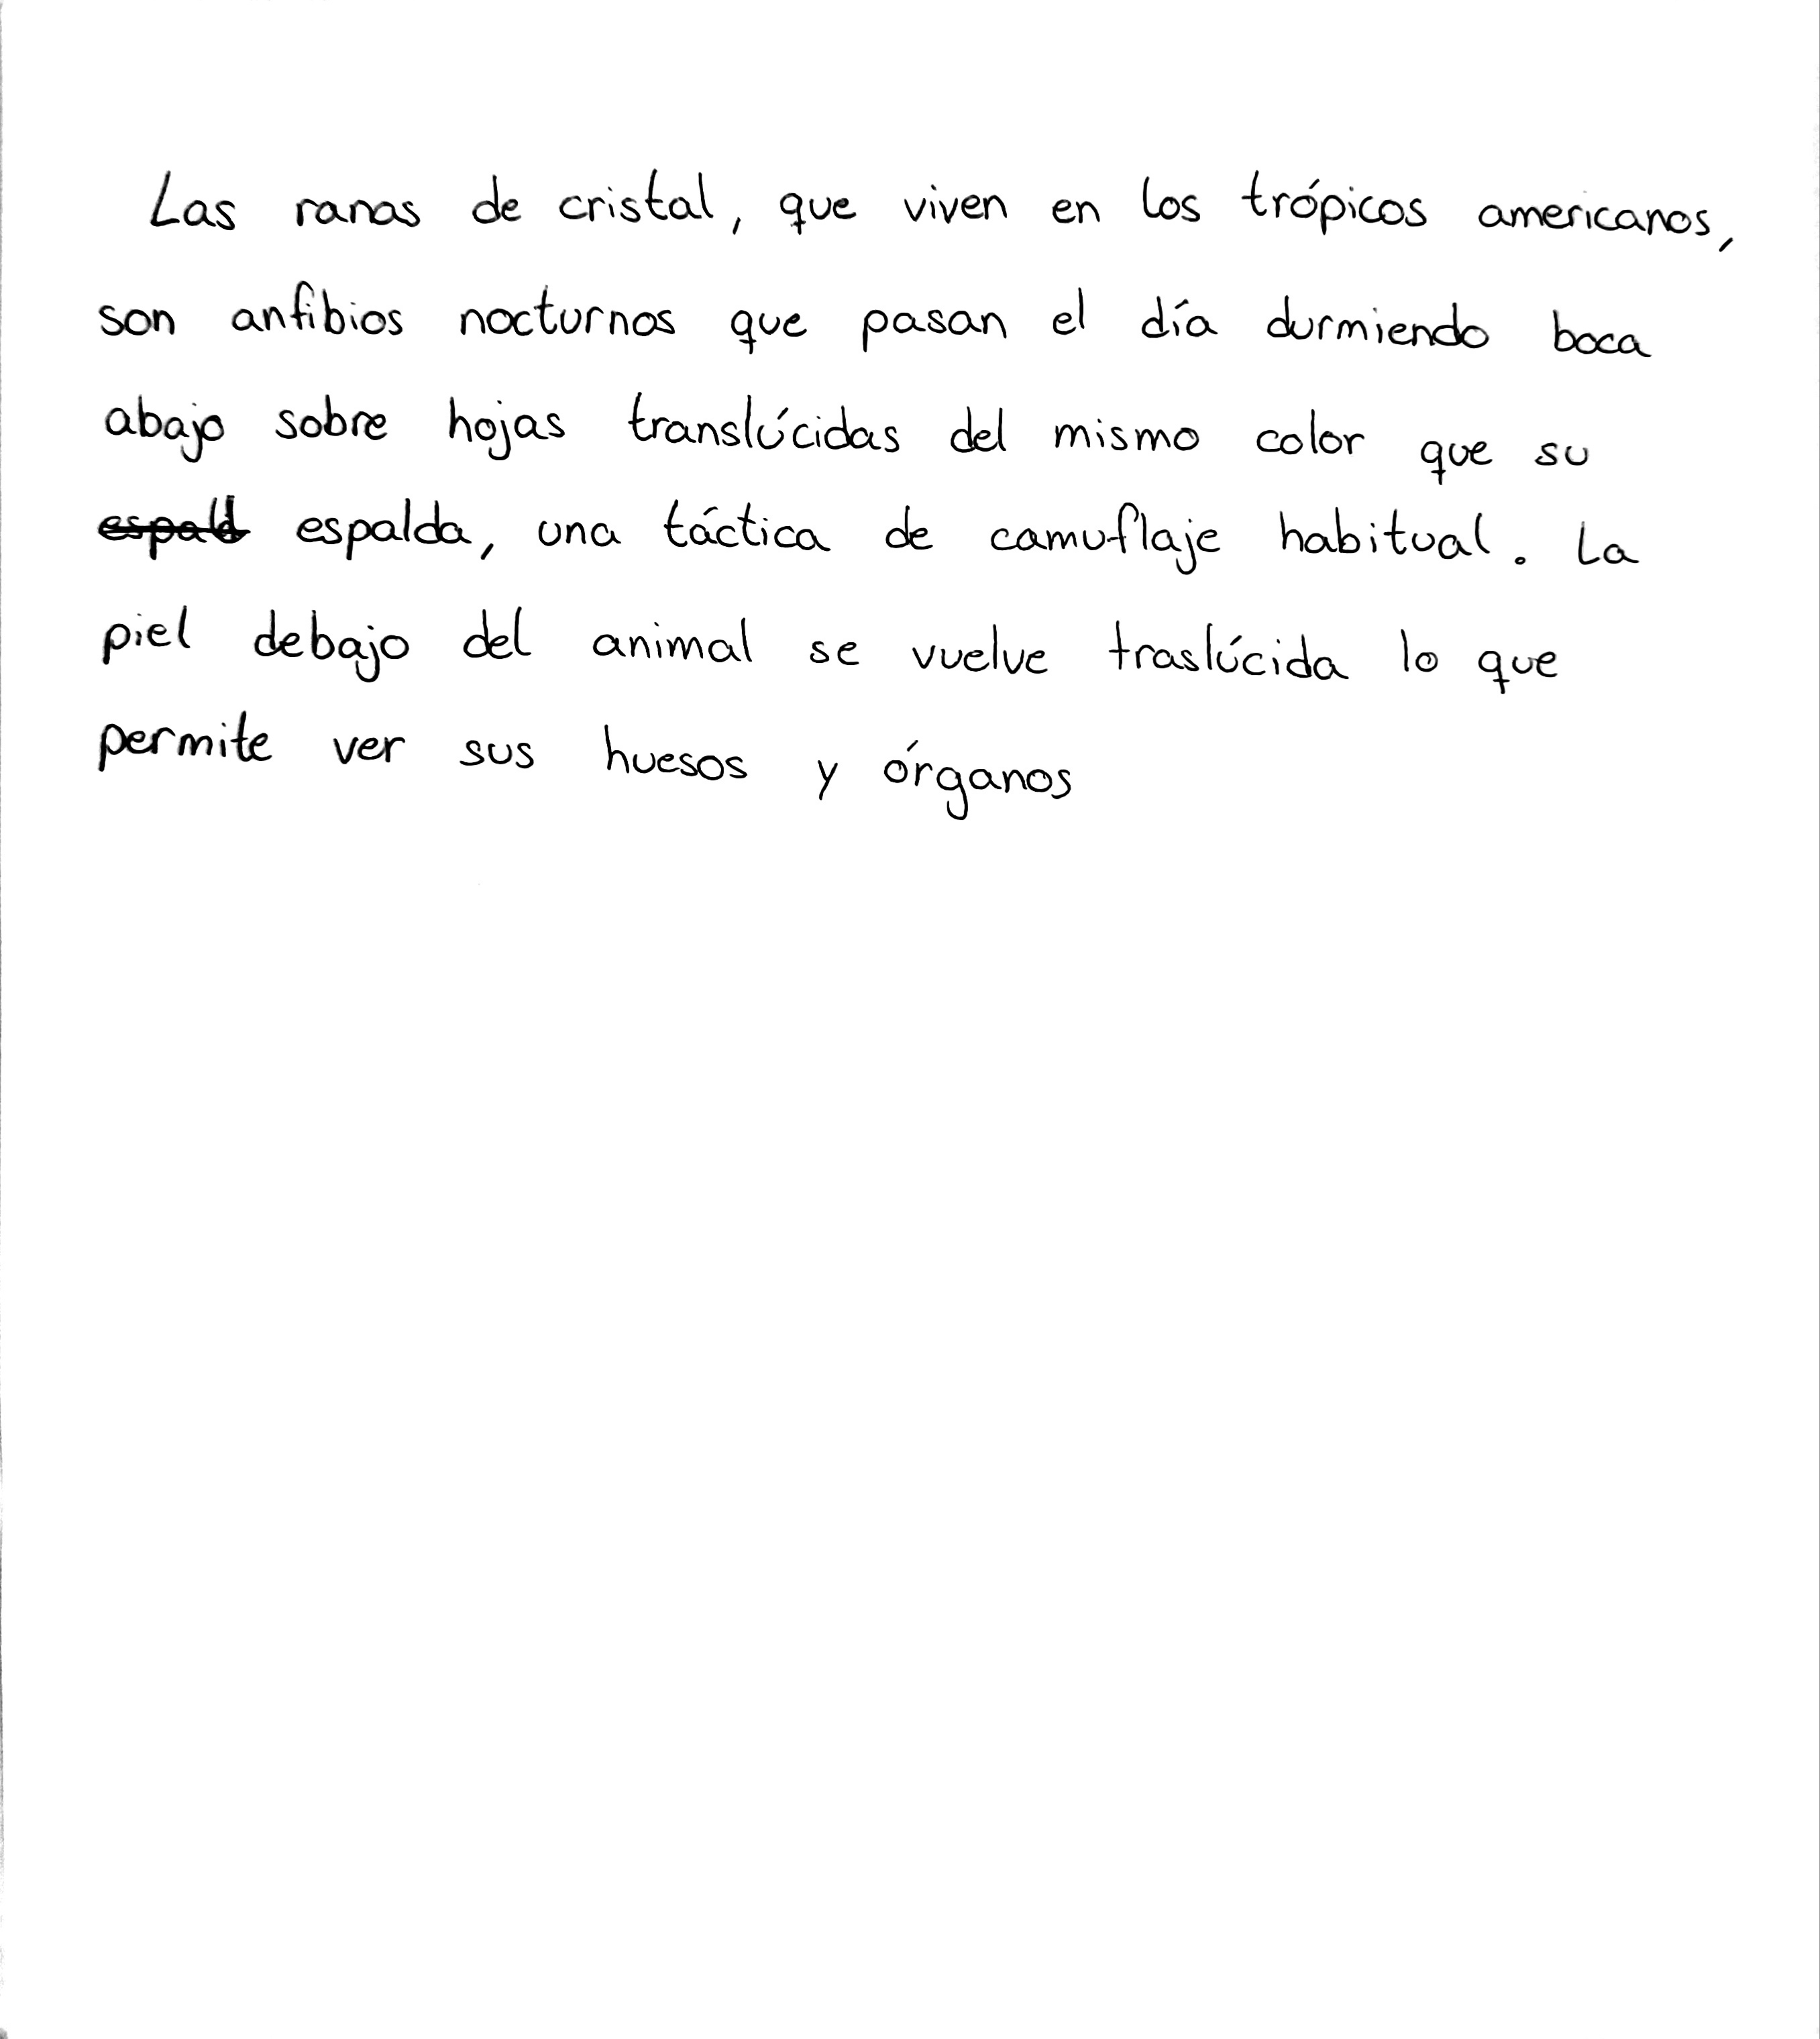 Las ranas de cristal, que viven en los trópicos americanos,
son anfibios nocturnos que pasan el día durmiendo boca
abajo sobre hojas translúcidas del mismo color que su
espald espalda, una táctica de camuflaje habitual. La
piel debajo del animal se vuelve traslúcida lo que
permite ver sus huesos y órganos